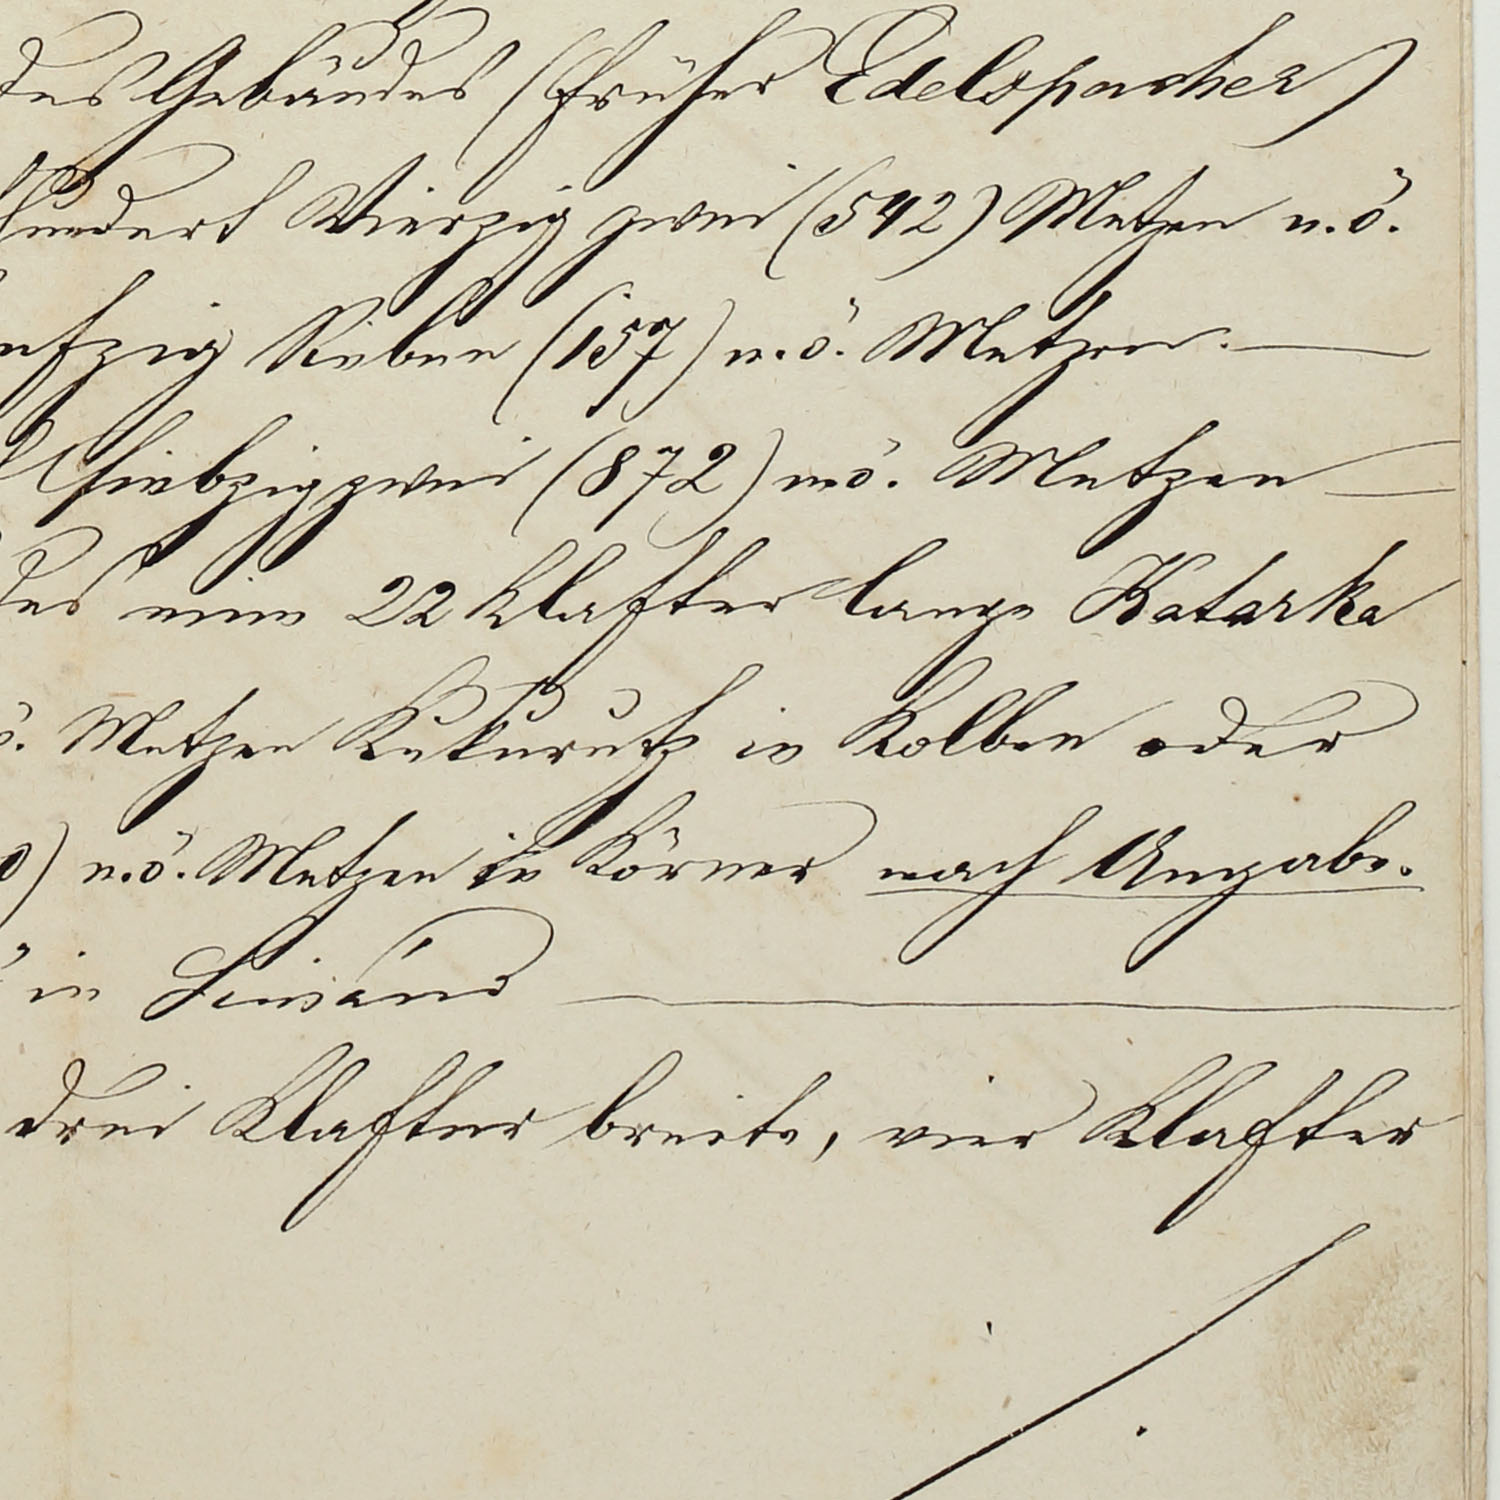 des Gebäudes (früher Edelspacher)
hundert Vierzig zwei (542) Metzen n.ö.
fzig Sieben (157) n.ö. Metzen.
siebzigzwei (872) nö. Metzen
des eine 22 Klafter lange Kotarka
ö. Metzen Kukurutz in Kolben oder
0) n.ö. Metzen in Körner nach Angabe.
in
drei Klafter breite, vier Klafter